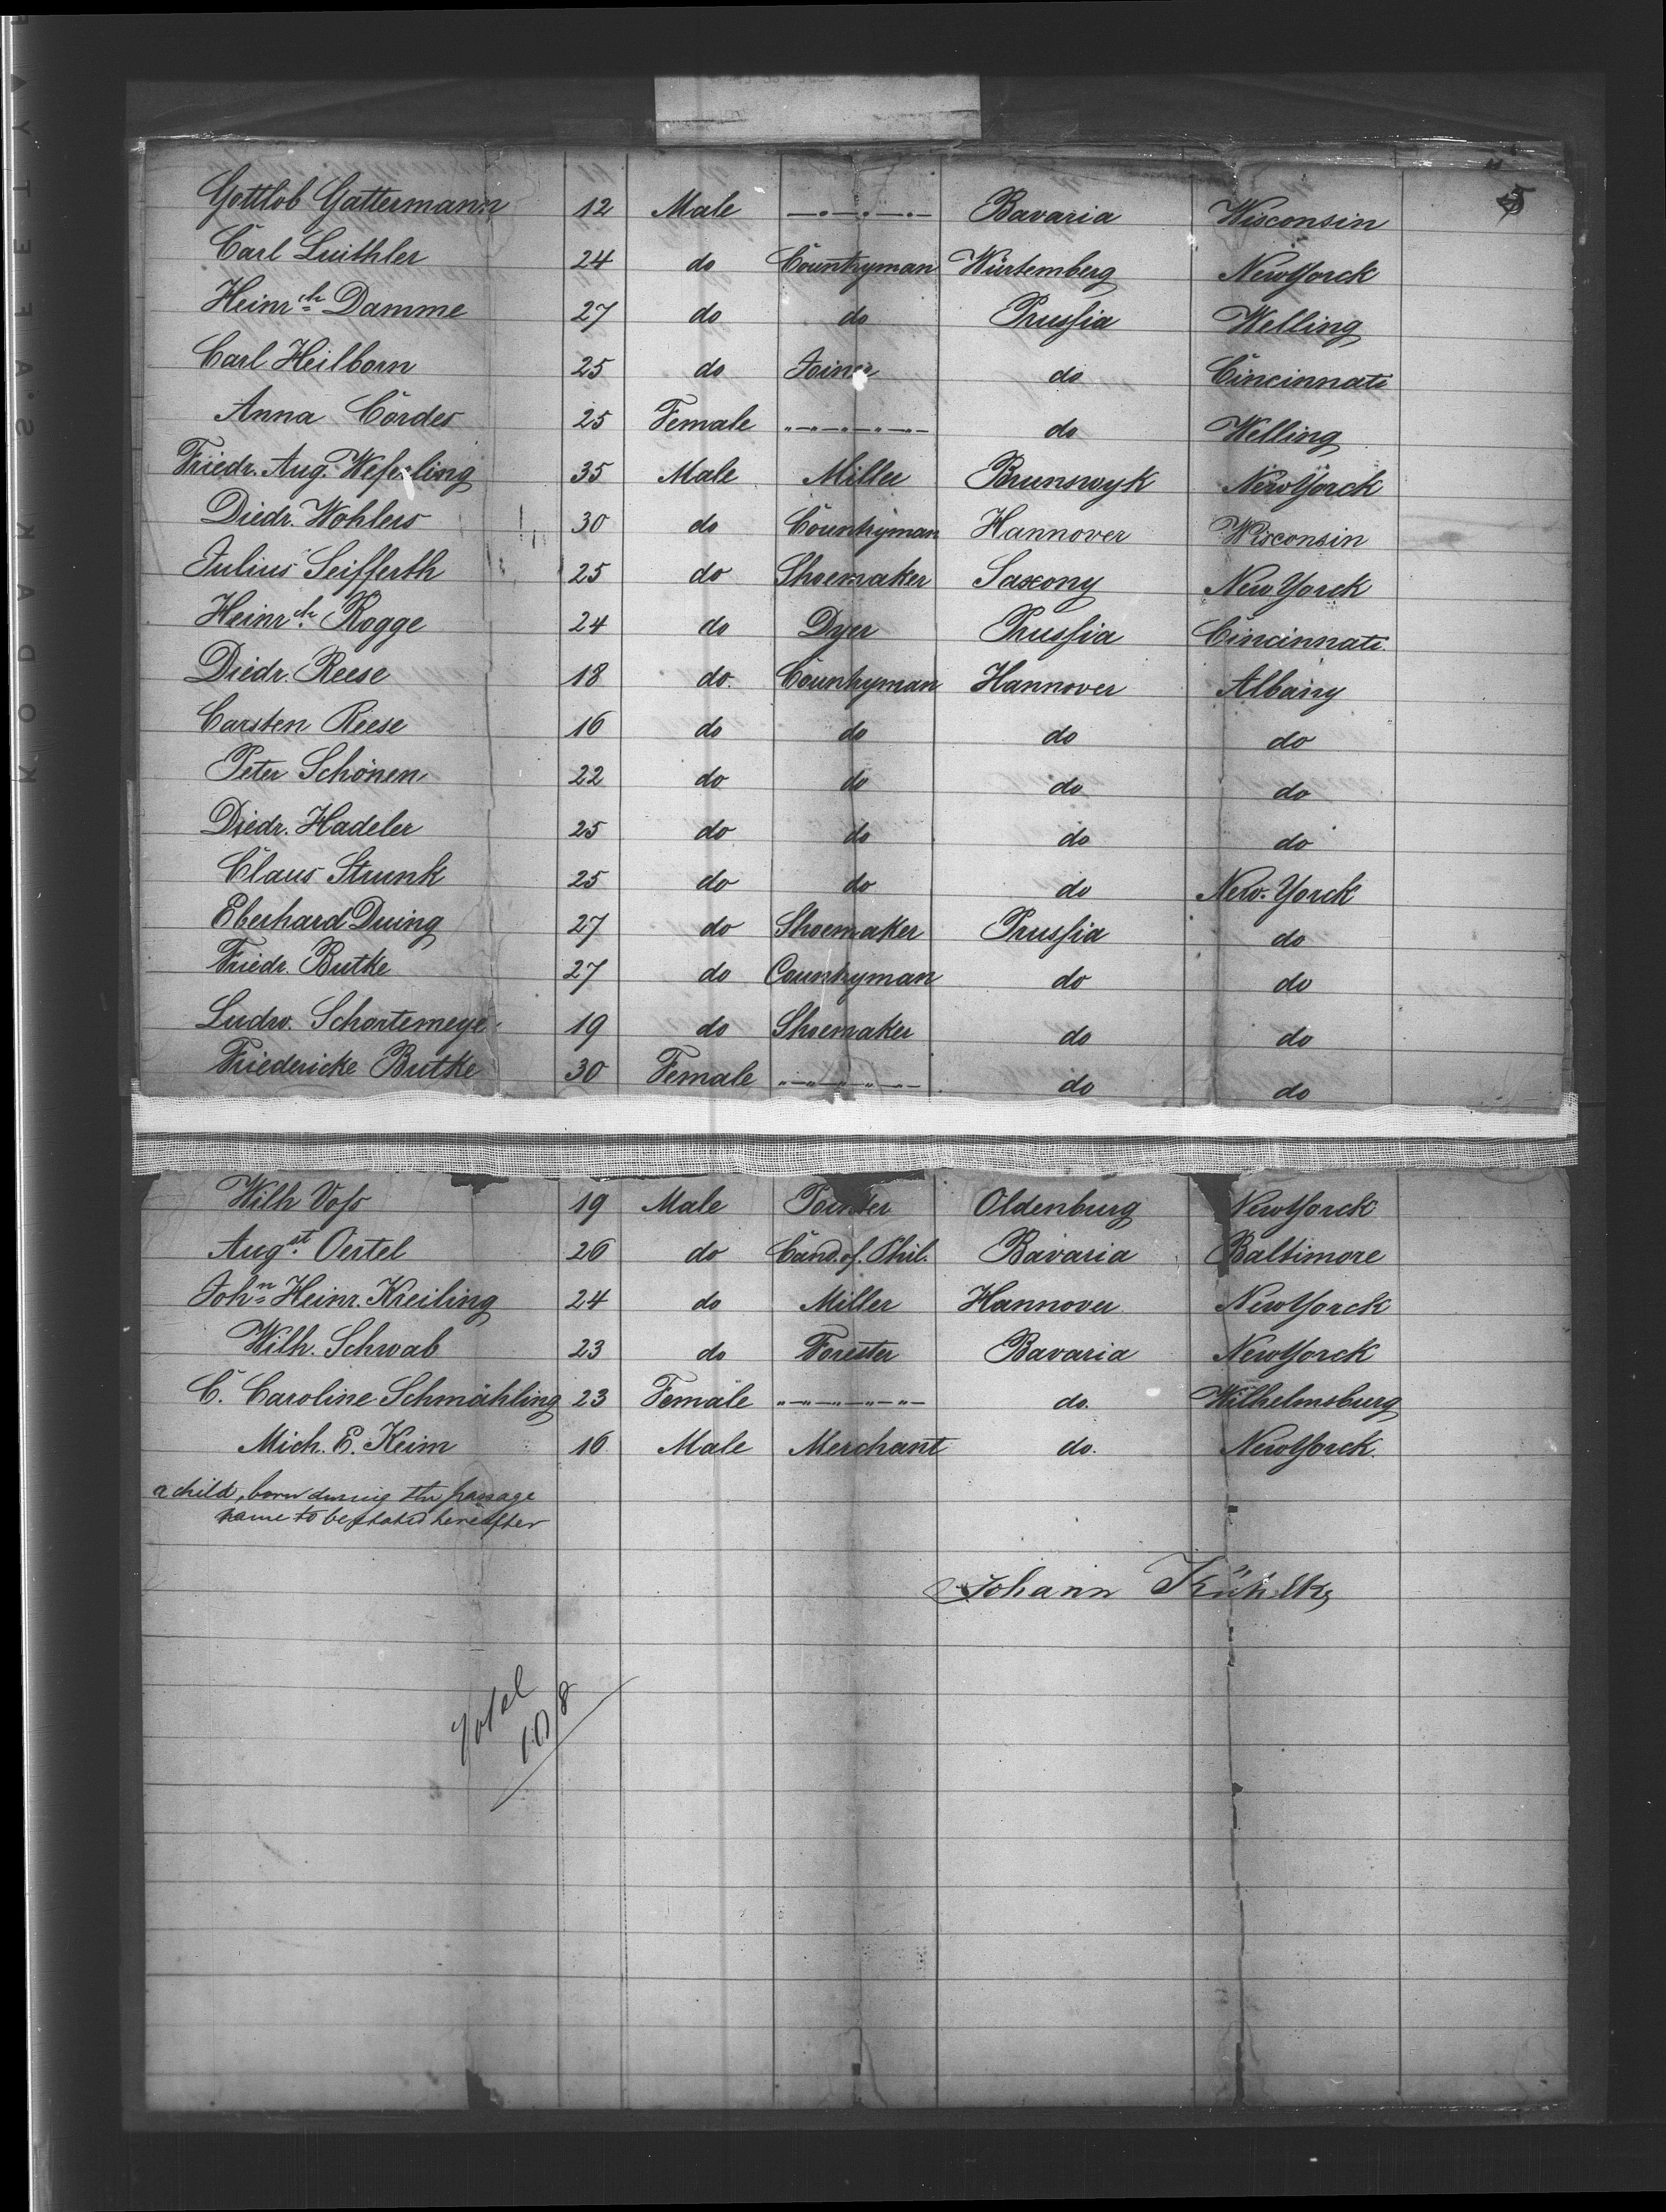 5
Gottlob Gattermann 12 Male —"—"—"— Bavaria Wisconsin
Carl Luithler 24 do Countryman Würtemberg NewYorck
Heinrch Damme 27 do do Prussia Welling
Carl Heilborn 25 do Joiner do Cincinnati
Anna Cordes 25 Female "—"—"—"—"— do Welling
Friedr. Aug. Weferling 35 Male Miller Brunswyk NewYorck
Diedr. Wohlers 30 do Countryman Hannover Wisconsin
Julius Seifferth 25 do Shoemaker Saxony New Yorck
Heinrch. Rogge 24 do Dyer Prussia Cincinnati.
Diedr. Reese 18 do. Countryman Hannover Albany
Carsten Reese 16 do do do do
Peter Schönen 22 do do do do
Diedr. Hadeler 25 do do do do
Claus Strunk 25 do do do New-Yorck
Eberhard Duing 27 do Shoemaker Prussia do
Friedr. Butke 27 do Countryman do do
Ludw. Schortemeye 19 do Shoemaker do do
Friedericke Butke 30 Female "—"—"—"— do do
Wilh Voss 19 Male Oldenburg NewYorck
Augst. Oertel 26 do Cand. of. Phil. Bavaria Baltimore
John Heinr. Kreiling 24 do Miller Hannover NewYorck
Wilh. Schwab 23 do Forester Bavaria NewYorck
C. Caroline Schmähling 23 Female "—"—"—"—"— do. Wilhelmsburg
Mich. E. Keim 16 Male Merchant do. NewYorck.
a child, born during the passage
name to be stated hereafter
Johann
Total
108
KODAK SAFETY